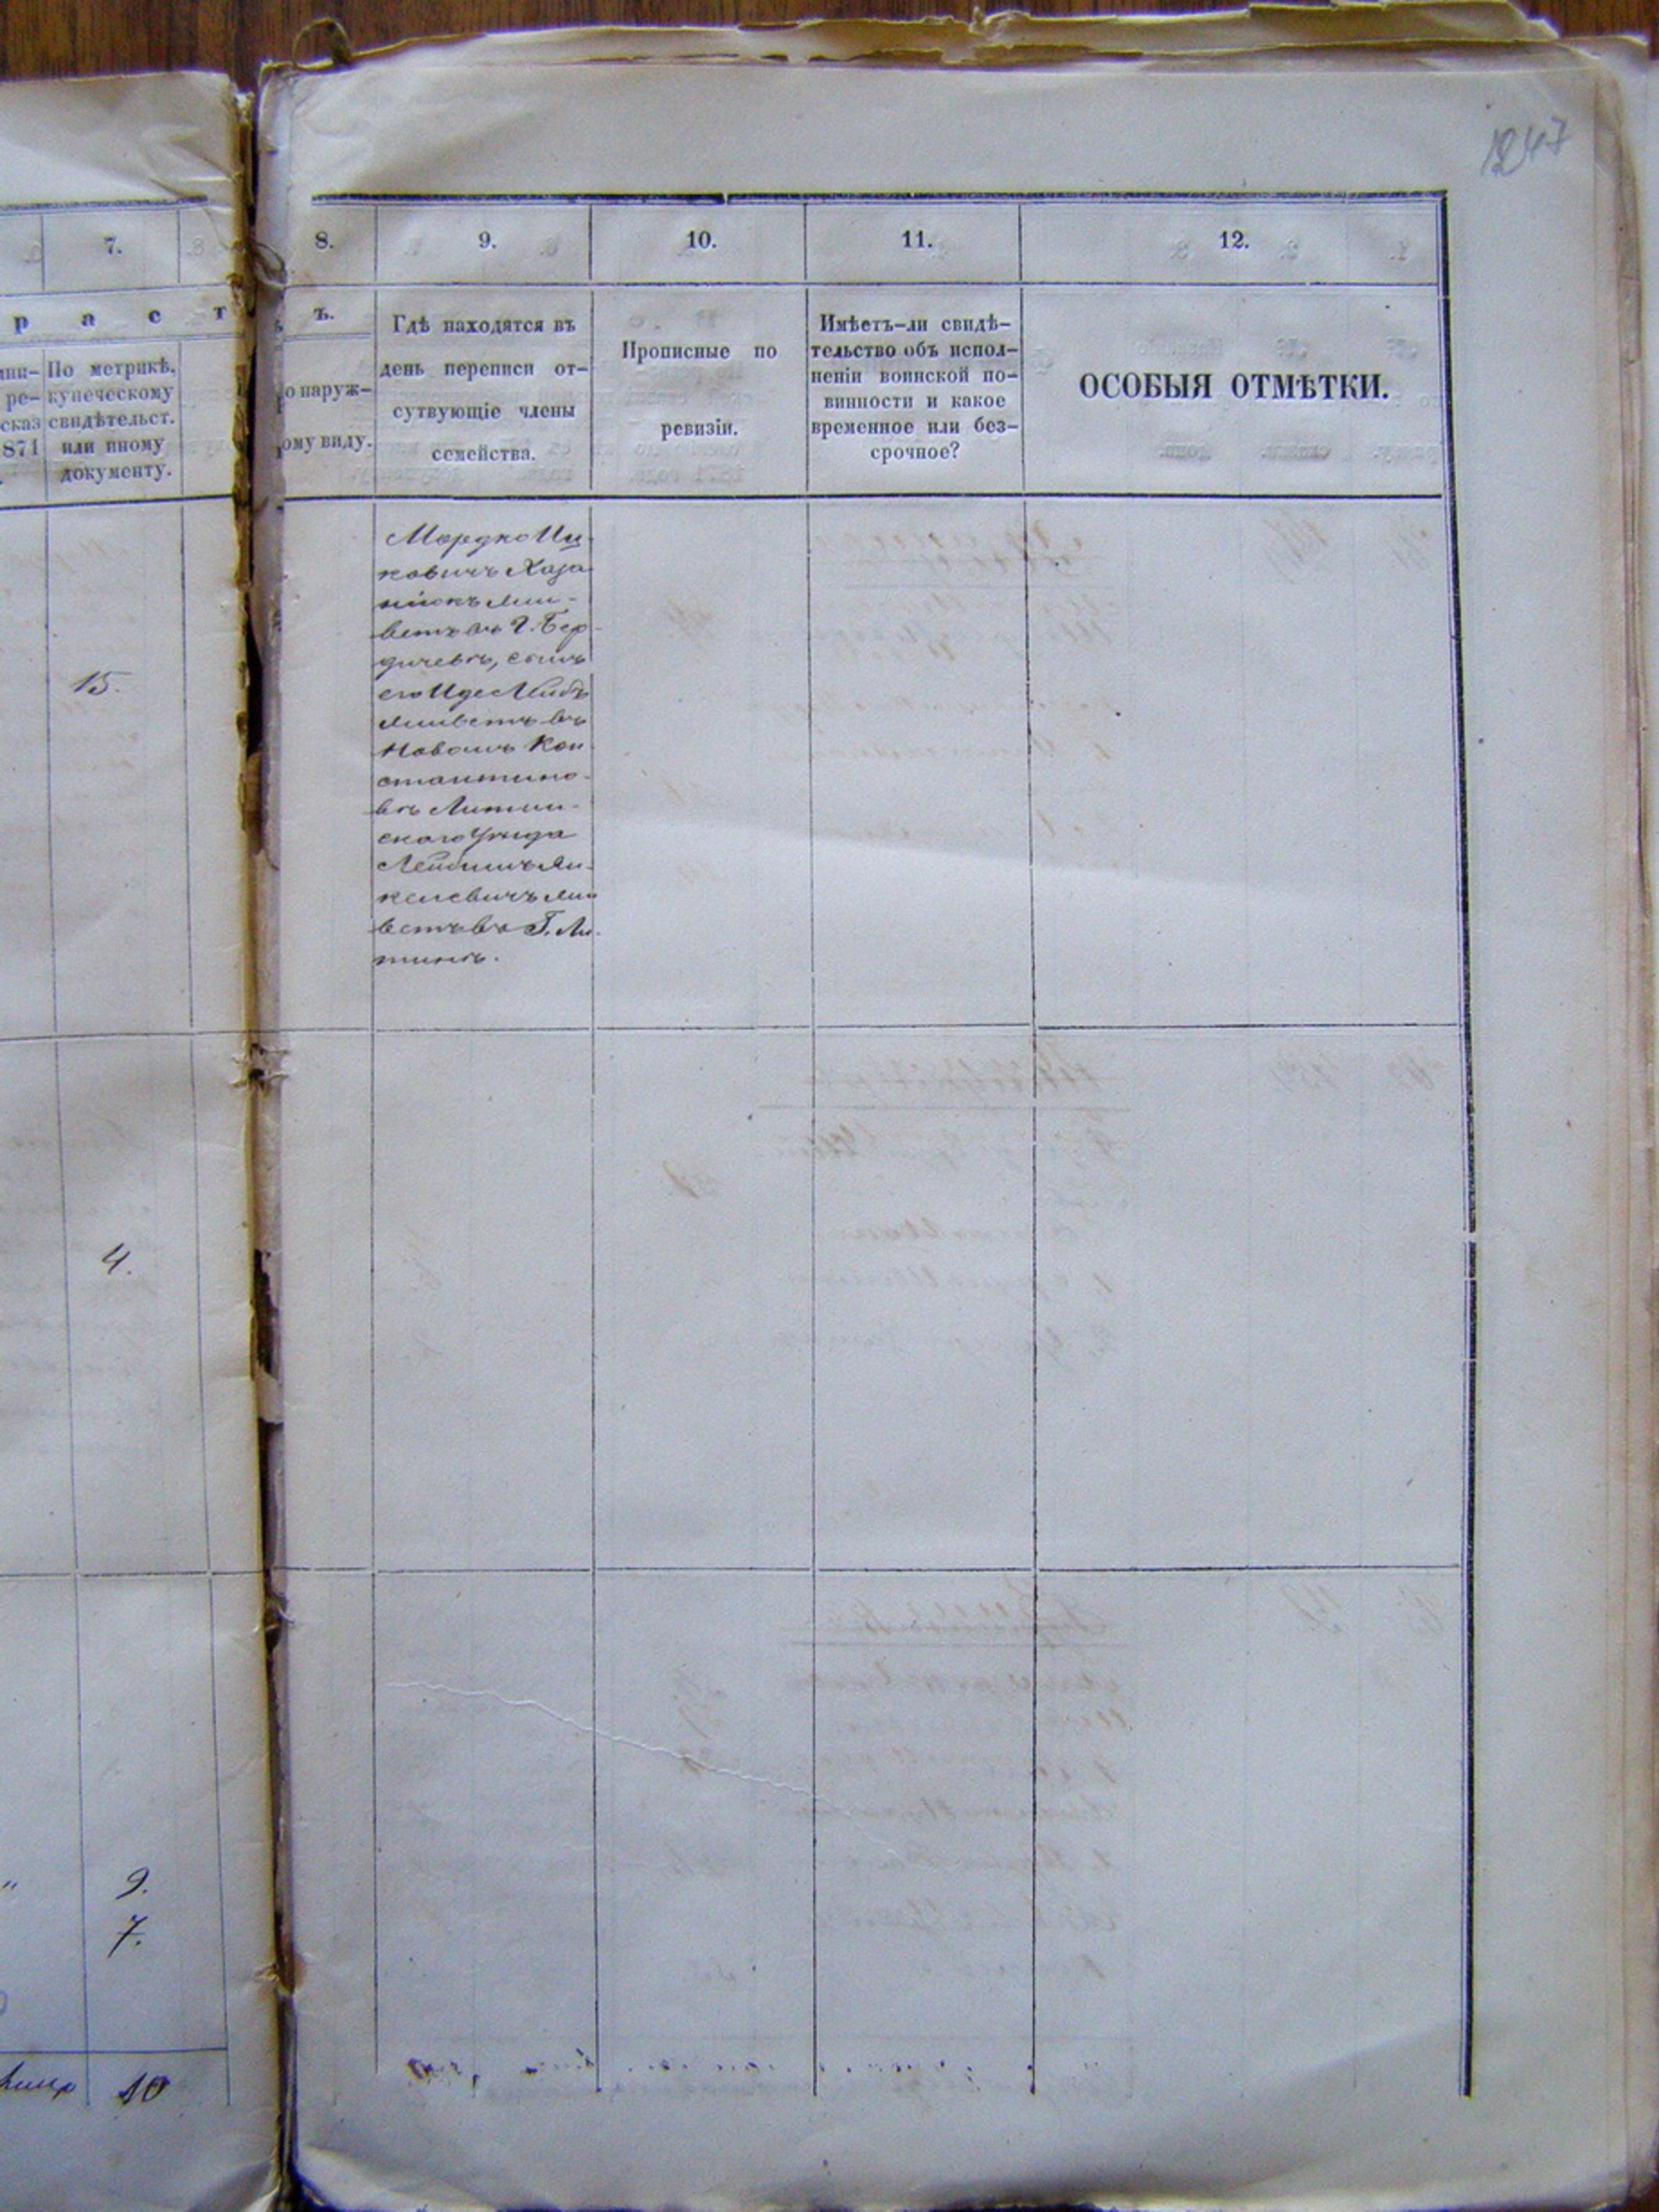 1247
7.
р а с т
ини-
ре-
сказ
871
По метрикѣ,
купеческому
свидѣтельст.
или иному
документу.
15.
4.
9.
7.
10
8.
9.
10.
11.
12.
ъ.
о наруж-
ому виду.
Гдѣ находятся въ
день переписи от-
сутвующіе члены
семейства.
Прописные по
ревизіи.
Имѣетъ-ли свидѣ-
тельство объ испол-
неніи воинской по-
винности и какое
временное или без-
срочное?
ОСОБЫЯ ОТМѢТКИ.
Мордко Иц
ковичъ Хаза
нюкъ жи-
ветъ въ Г. Бер
дичевѣ, сынъ
его Иде Лейбъ
живетъ въ
Новомъ Кон
стантино-
вѣ Литин-
ского Уѣзда
Лейбишъ Ян-
келевичъ жи
ветъ въ Г. Ли-
тинѣ.